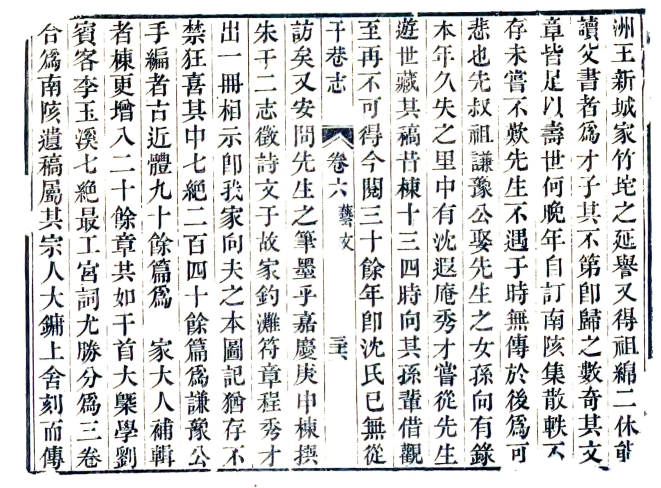 洲王新城家竹垞之延譽又得祖綿二休能
讀父書者爲才子其不第卽歸之數奇其文
章皆足以壽世何晚年自訂南陔集散軼不
存未嘗不歎先生不遇于時無傳於後爲可
悲也先叔祖謙豫公娶先生之女孫向有錄
本年久失之里中有沈遐庵秀才嘗從先生
遊世藏其稿昔棟十三四時向其孫輩借觀
至再不可得今閱三十餘年卽沈氏已無從
干巷志 卷六 藝文
訪矣又安問先生之筆墨乎嘉慶庚申棟撰
朱干二志徵詩文于故家釣灘符章程秀才
出一冊相示卽我家向夫之本圖記猶存不
禁狂喜其中七絕二百四十餘篇爲謙豫公
手編者古近體九十餘篇爲 家大人補輯
者棟更增入二十餘章共如干首大槩學劉
賓客李玉溪七絕最工宮詞尤勝分爲三卷
合爲南陔遺稿屬其宗人大鏞上舍刻而傳